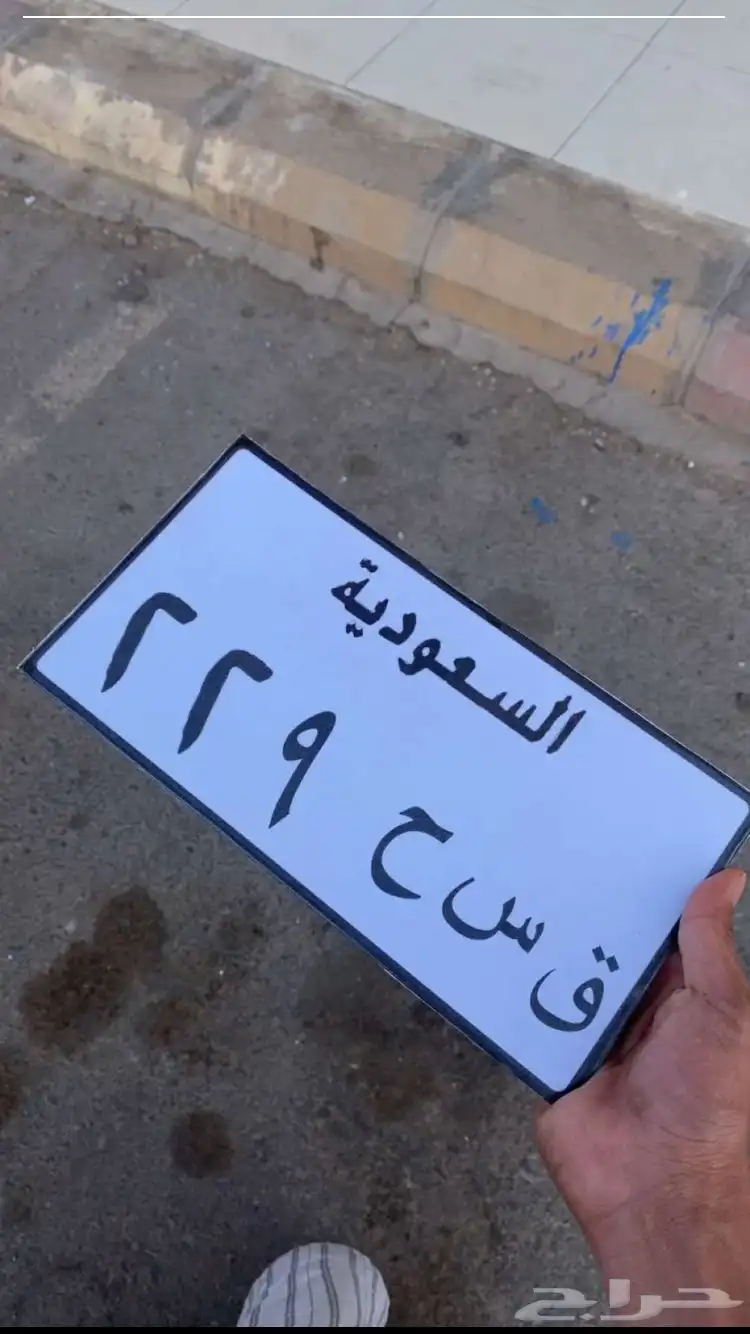 السعودية
ق س ح ٢٢٩
حراج